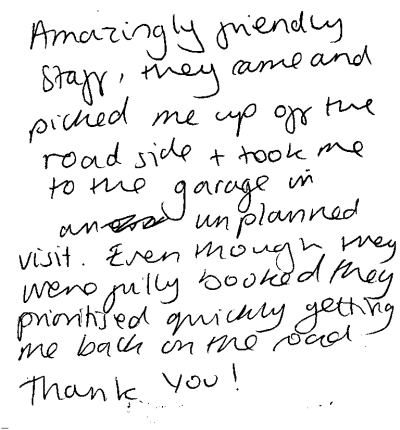 Amazingly friendly
staff, they came and
picked me up off the
road side + took me
to the garage in
an unplanned
visit. Even though they
were fully booked they
prioritised quickly getting
me back on the road
Thank you!